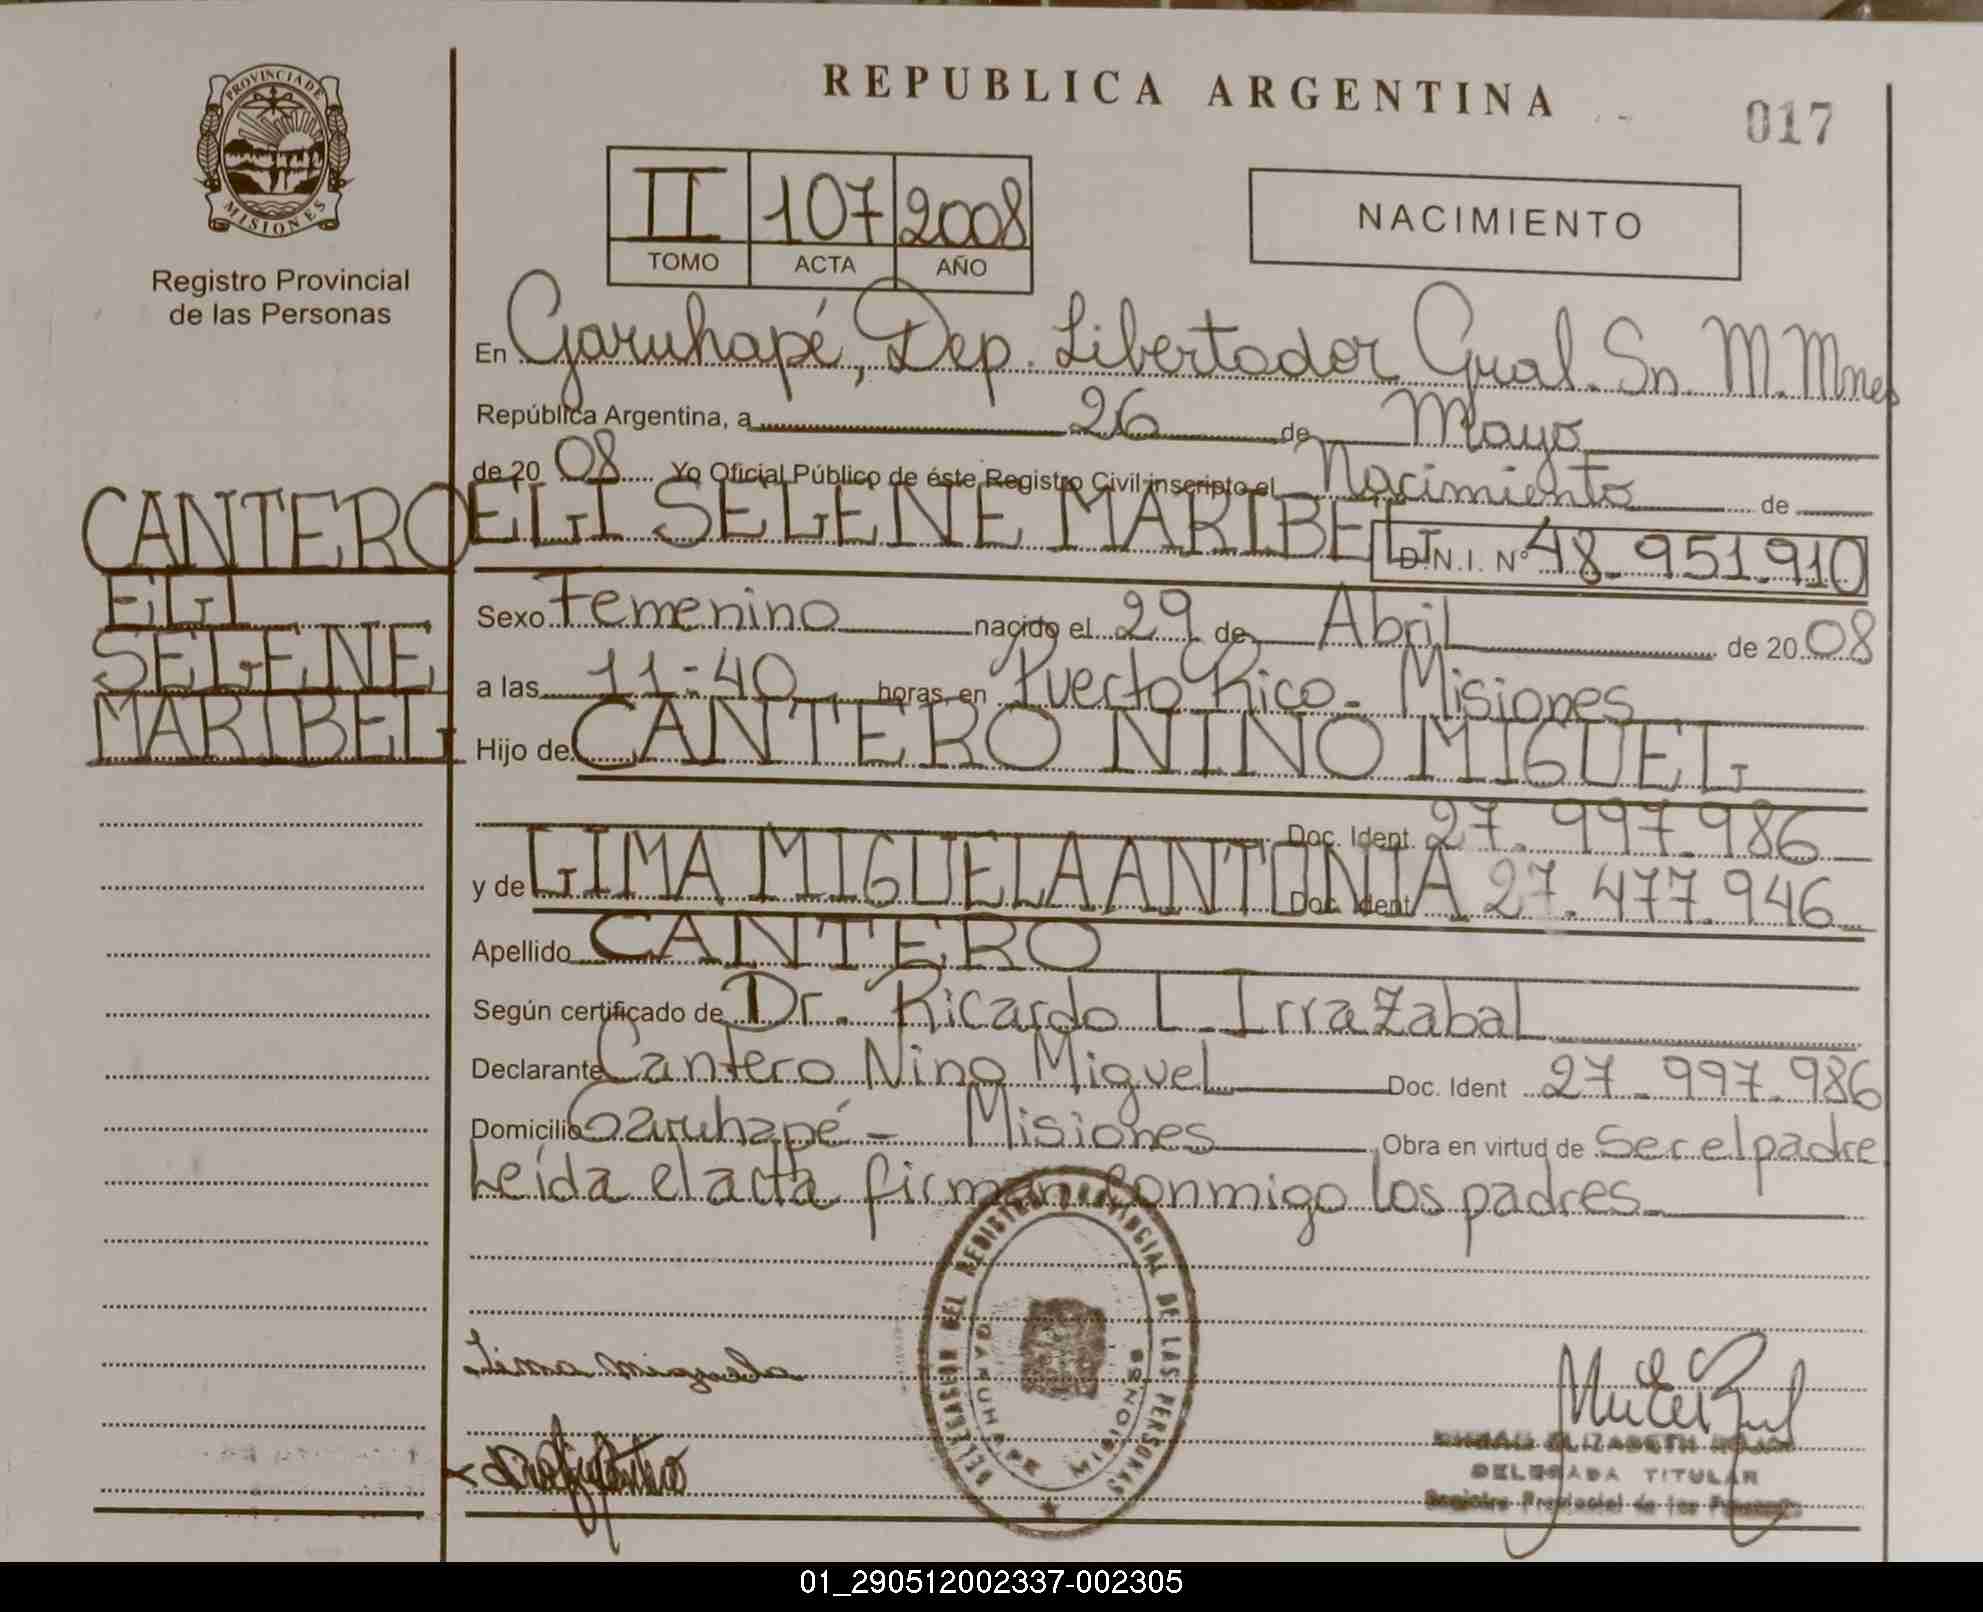 REPUBLICA ARGENTINA
017
PROVINCIA DE MISIONES
Registro Provincial
de las Personas
II 107 2008
TOMO ACTA AÑO
NACIMIENTO
En Garuhapé, Dep. Libertador Gral. Sn. M. Mnes
República Argentina, a 26 de Mayo
de 20 08 Yo Oficial Público de éste Registro Civil inscripto el Nacimiento de
CANTERO
ELI
SELENE
MARIBEL
ELI SELENE MARIBEL D.N.I. Nº 48.951.910
Sexo Femenino nacido el 29 de Abril de 20 08
a las 11:40 horas, en Puerto Rico - Misiones
Hijo de CANTERO NINO MIGUEL
Doc. Ident. 27.997.986
y de LIMA MIGUELA ANTONIA Doc. Ident 27.477.946
Apellido CANTERO
Según certificado de Dr. Ricardo L. Irrazabal
Declarante Cantero Nino Miguel Doc. Ident 27.997.986
Domicilio Garuhapé - Misiones Obra en virtud de Ser el padre
Leída el acta firman conmigo los padres
DELEGACION DEL REGISTRO PROVINCIAL DE LAS PERSONAS
GARUHAPE MISIONES
ELIZABETH
DELEGADA TITULAR
Registro Provincial de las Personas
01_290512002337-002305